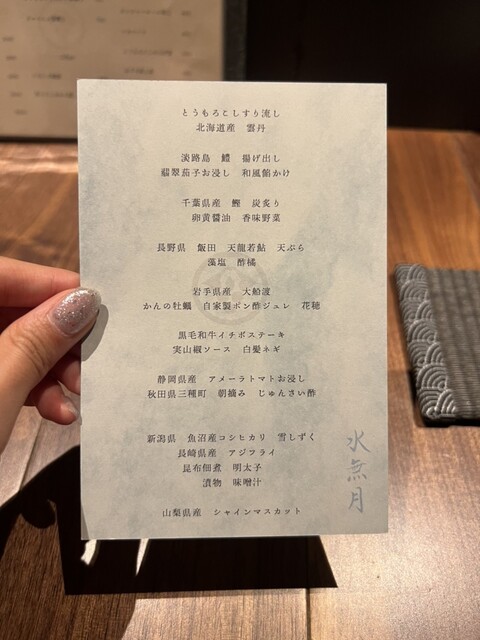 とうもろこしすり流し
北海道産 雲丹
淡路島 鱧 揚げ出し
翡翠茄子お浸し 和風餡かけ
千葉県産 鰹 炭炙り
卵黄醤油 香味野菜
長野県 飯田 天龍若鮎 天ぷら
藻塩 酢橘
岩手県産 大船渡
かんの牡蠣 自家製ポン酢ジュレ 花穂
黒毛和牛イチボステーキ
実山椒ソース 白髪ネギ
静岡県産 アメーラトマトお浸し
秋田県三種町 朝摘み じゅんさい酢
新潟県 魚沼産コシヒカリ 雪しずく
長崎県産 アジフライ
昆布佃煮 明太子
漬物 味噌汁
山梨県産 シャインマスカット
水無月